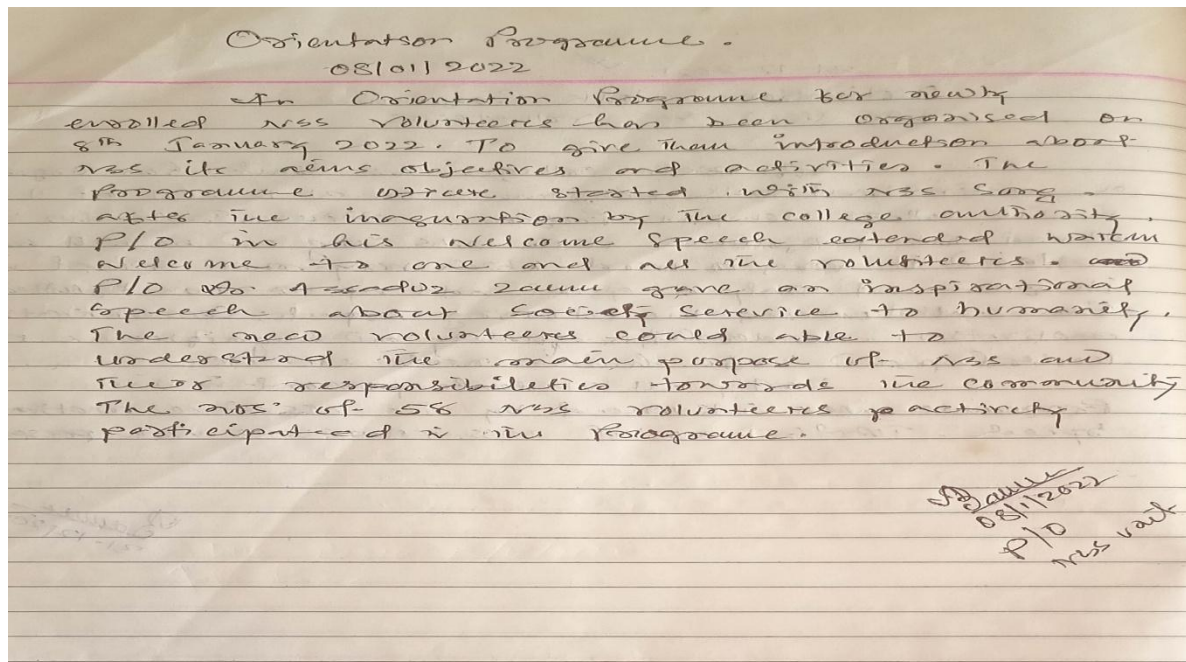 Orientatson Programme.
08/01/2022
An Orientation Programme for newly
enrolled NSS volunteers has been organised on
8th January 2022. To give them introduction about
NSS its aims objectives and activities. The
Programme were started with NSS Song.
after the inaguration by the college authority.
P/O in his welcome speech extended warm
welcome to one and all the volunteers.
P/O gave an inspirational
speech about Society Service to humanity.
The new volunteers could able to
understand the main purpose of NSS and
their responsibileties towards the community
The nos. of 58 NSS volunteers actively
participated in the Programme.
08/1/2022
P/O
NSS unit